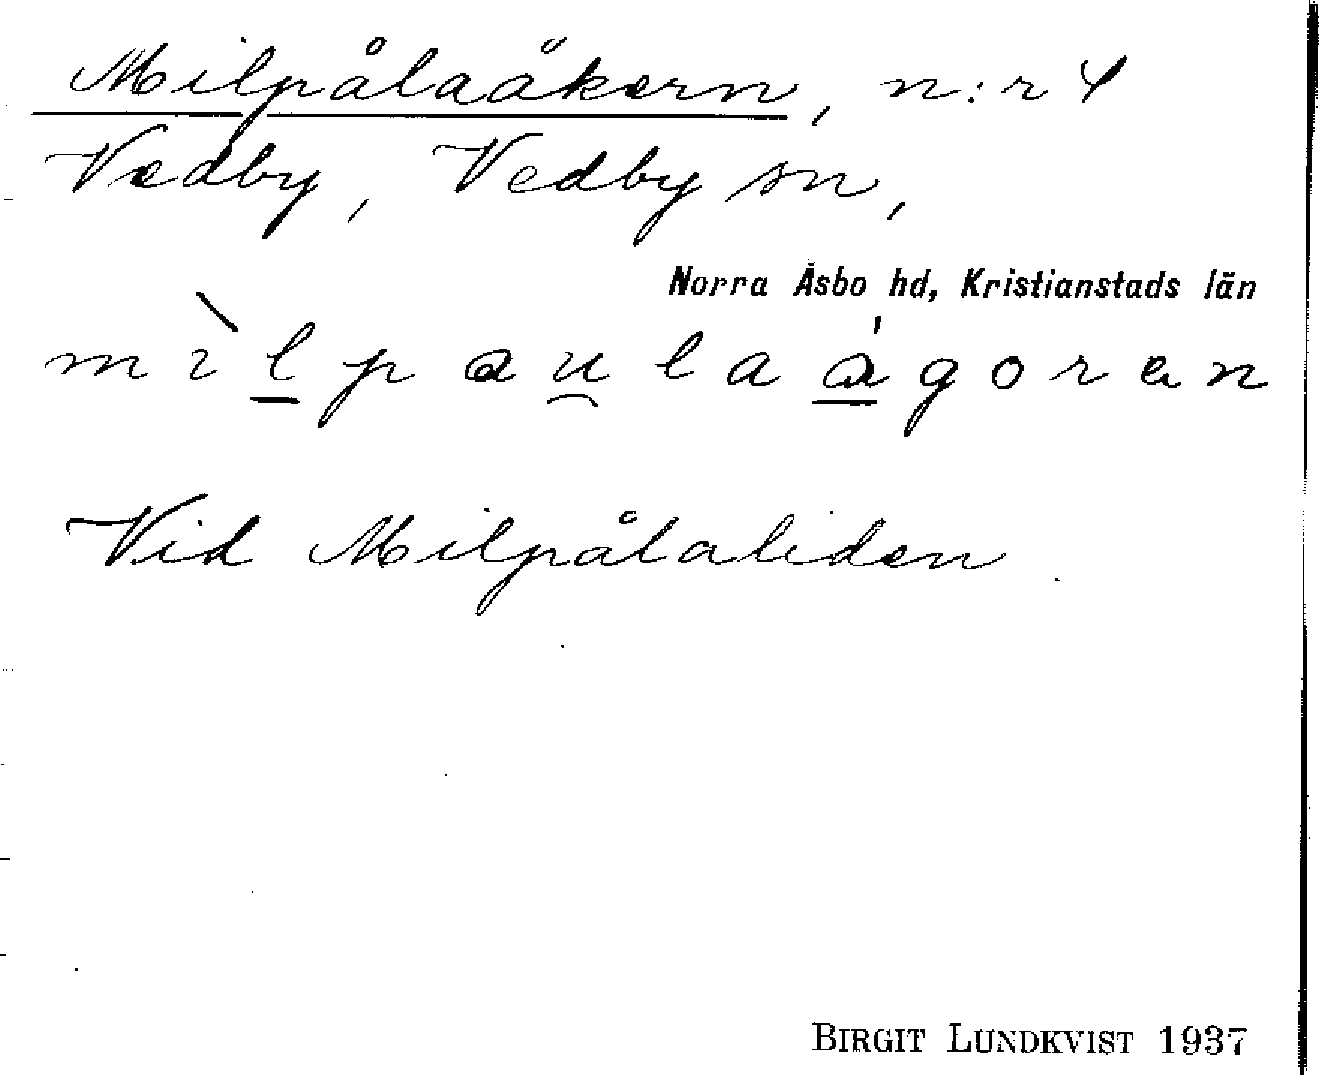 Milpålaåkern, n:r 4
Vedby, Vedby sn,
Norra Åsbo hd, Kristianstads län
mìlpau̯laágoran
Vid Milpålaliden
BIRGIT LUNDKVIST 1937